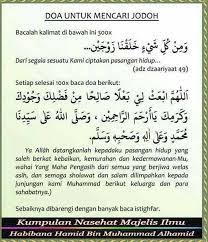 DOA UNTUK MENCARI JODOH
Bacalah kalimat di bawah ini 300x
وَمِنْ كُلِّ شَيْءٍ خَلَقْنَا زَوْجَيْنِ...
Dari segala sesuatu Kami ciptakan pasangan hidup...
(adz dzaariyaat 49)
Setiap selesai 100x baca doa berikut:
اَللّٰهُمَّ ابْعَثْ لِيْ بَعْلًا صَالِحًا مِنْ فَضْلِكَ وَجُوْدِكَ
وَكَرَمِكَ يَاأَرْحَمَ الرَّاحِمِيْنَ، وَصَلَّى اللهُ عَلَى سَيِّدِنَا
مُحَمَّدٍ وَعَلَى آلِهِ وَصَحْبِهِ وَسَلَّمَ.
Ya Allâh datangkanlah kepadaku pasangan hidup yang
saleh berkat kebaikan, kemurahan dan kedermawanan-Mu,
wahai Yang Maha Pengasih dari semua yang berjiwa welas
asih, dan semoga sholawat dan salam dilimpahkan kepada
junjungan kami Muhammad berikut keluarga dan para
sahabatnya.)
Sebaiknya dibarengi dengan banyak baca istighfar.
Kumpulan Nasehat Majelis Ilmu
Habibana Hamid Bin Muhammad Alhamid